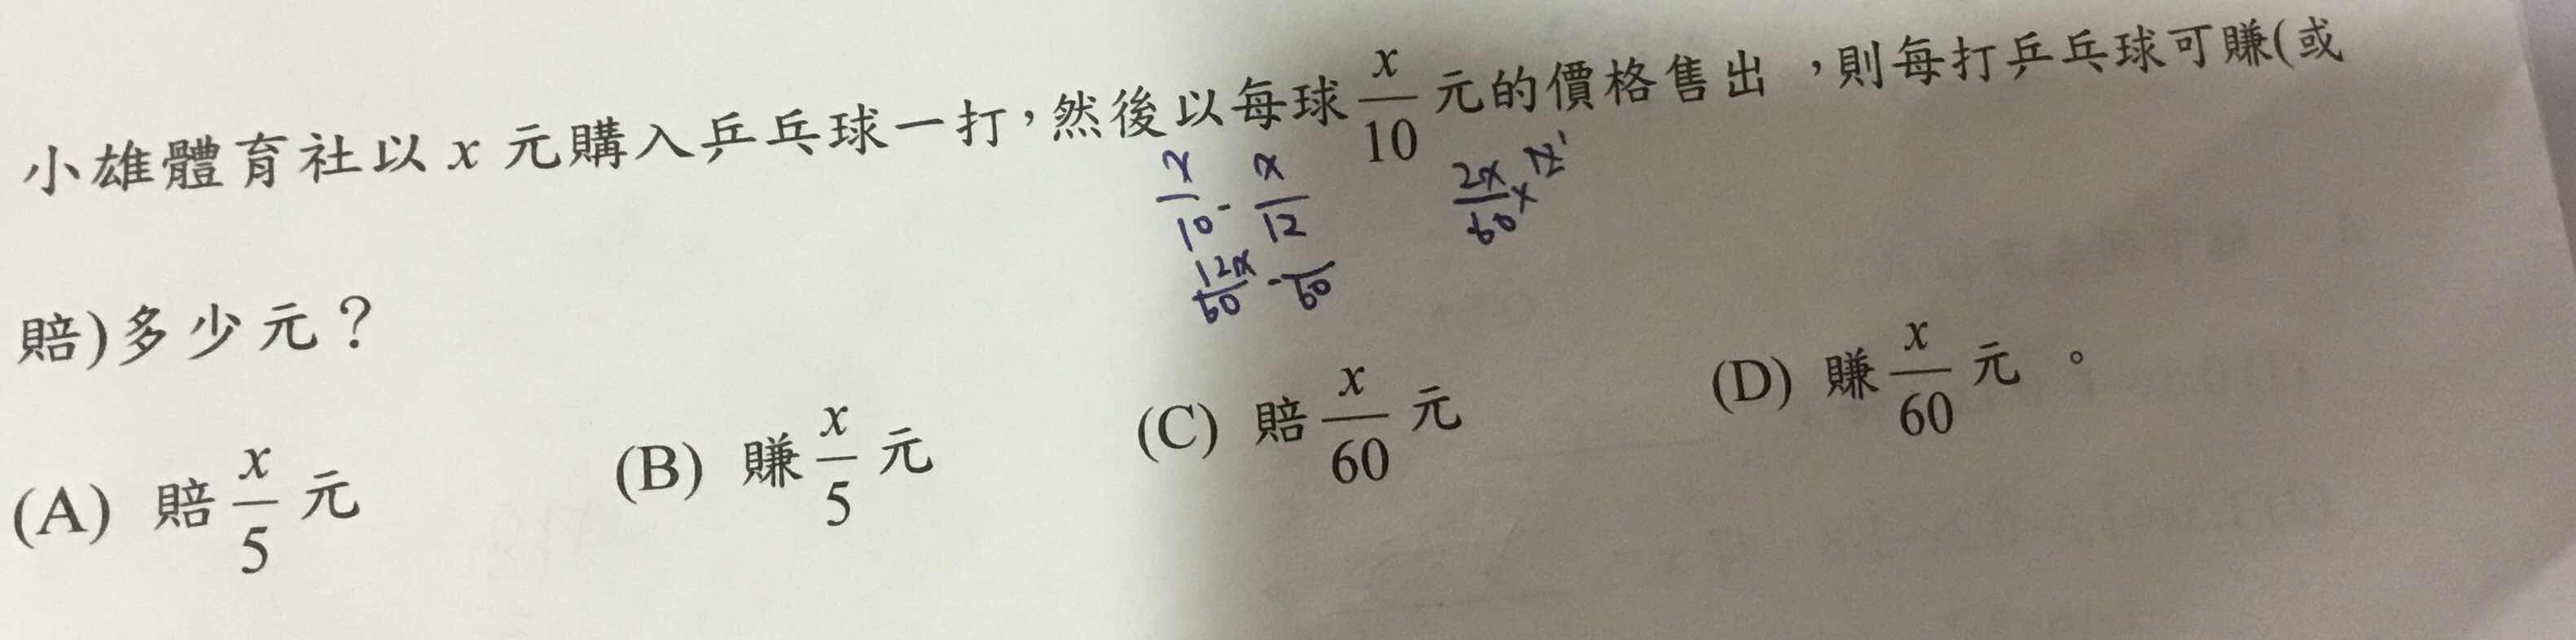 小雄體育社以 x 元購入乒乓球一打，然後以每球 x/10 元的價格售出，則每打乒乓球可賺(或
x/10 - x/12
2x/60 × 12
12x/60 - /60
賠)多少元？
(A) 賠 x/5 元 (B) 賺 x/5 元 (C) 賠 x/60 元 (D) 賺 x/60 元。